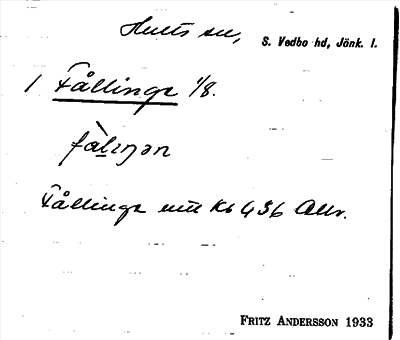 Hults sn, S. Vedbo hd, Jönk. l.
1 Fållinge 1/8.
fàlıŋən
Fållinge utt Kb 436 Allr.
FRITZ ANDERSSON 1933